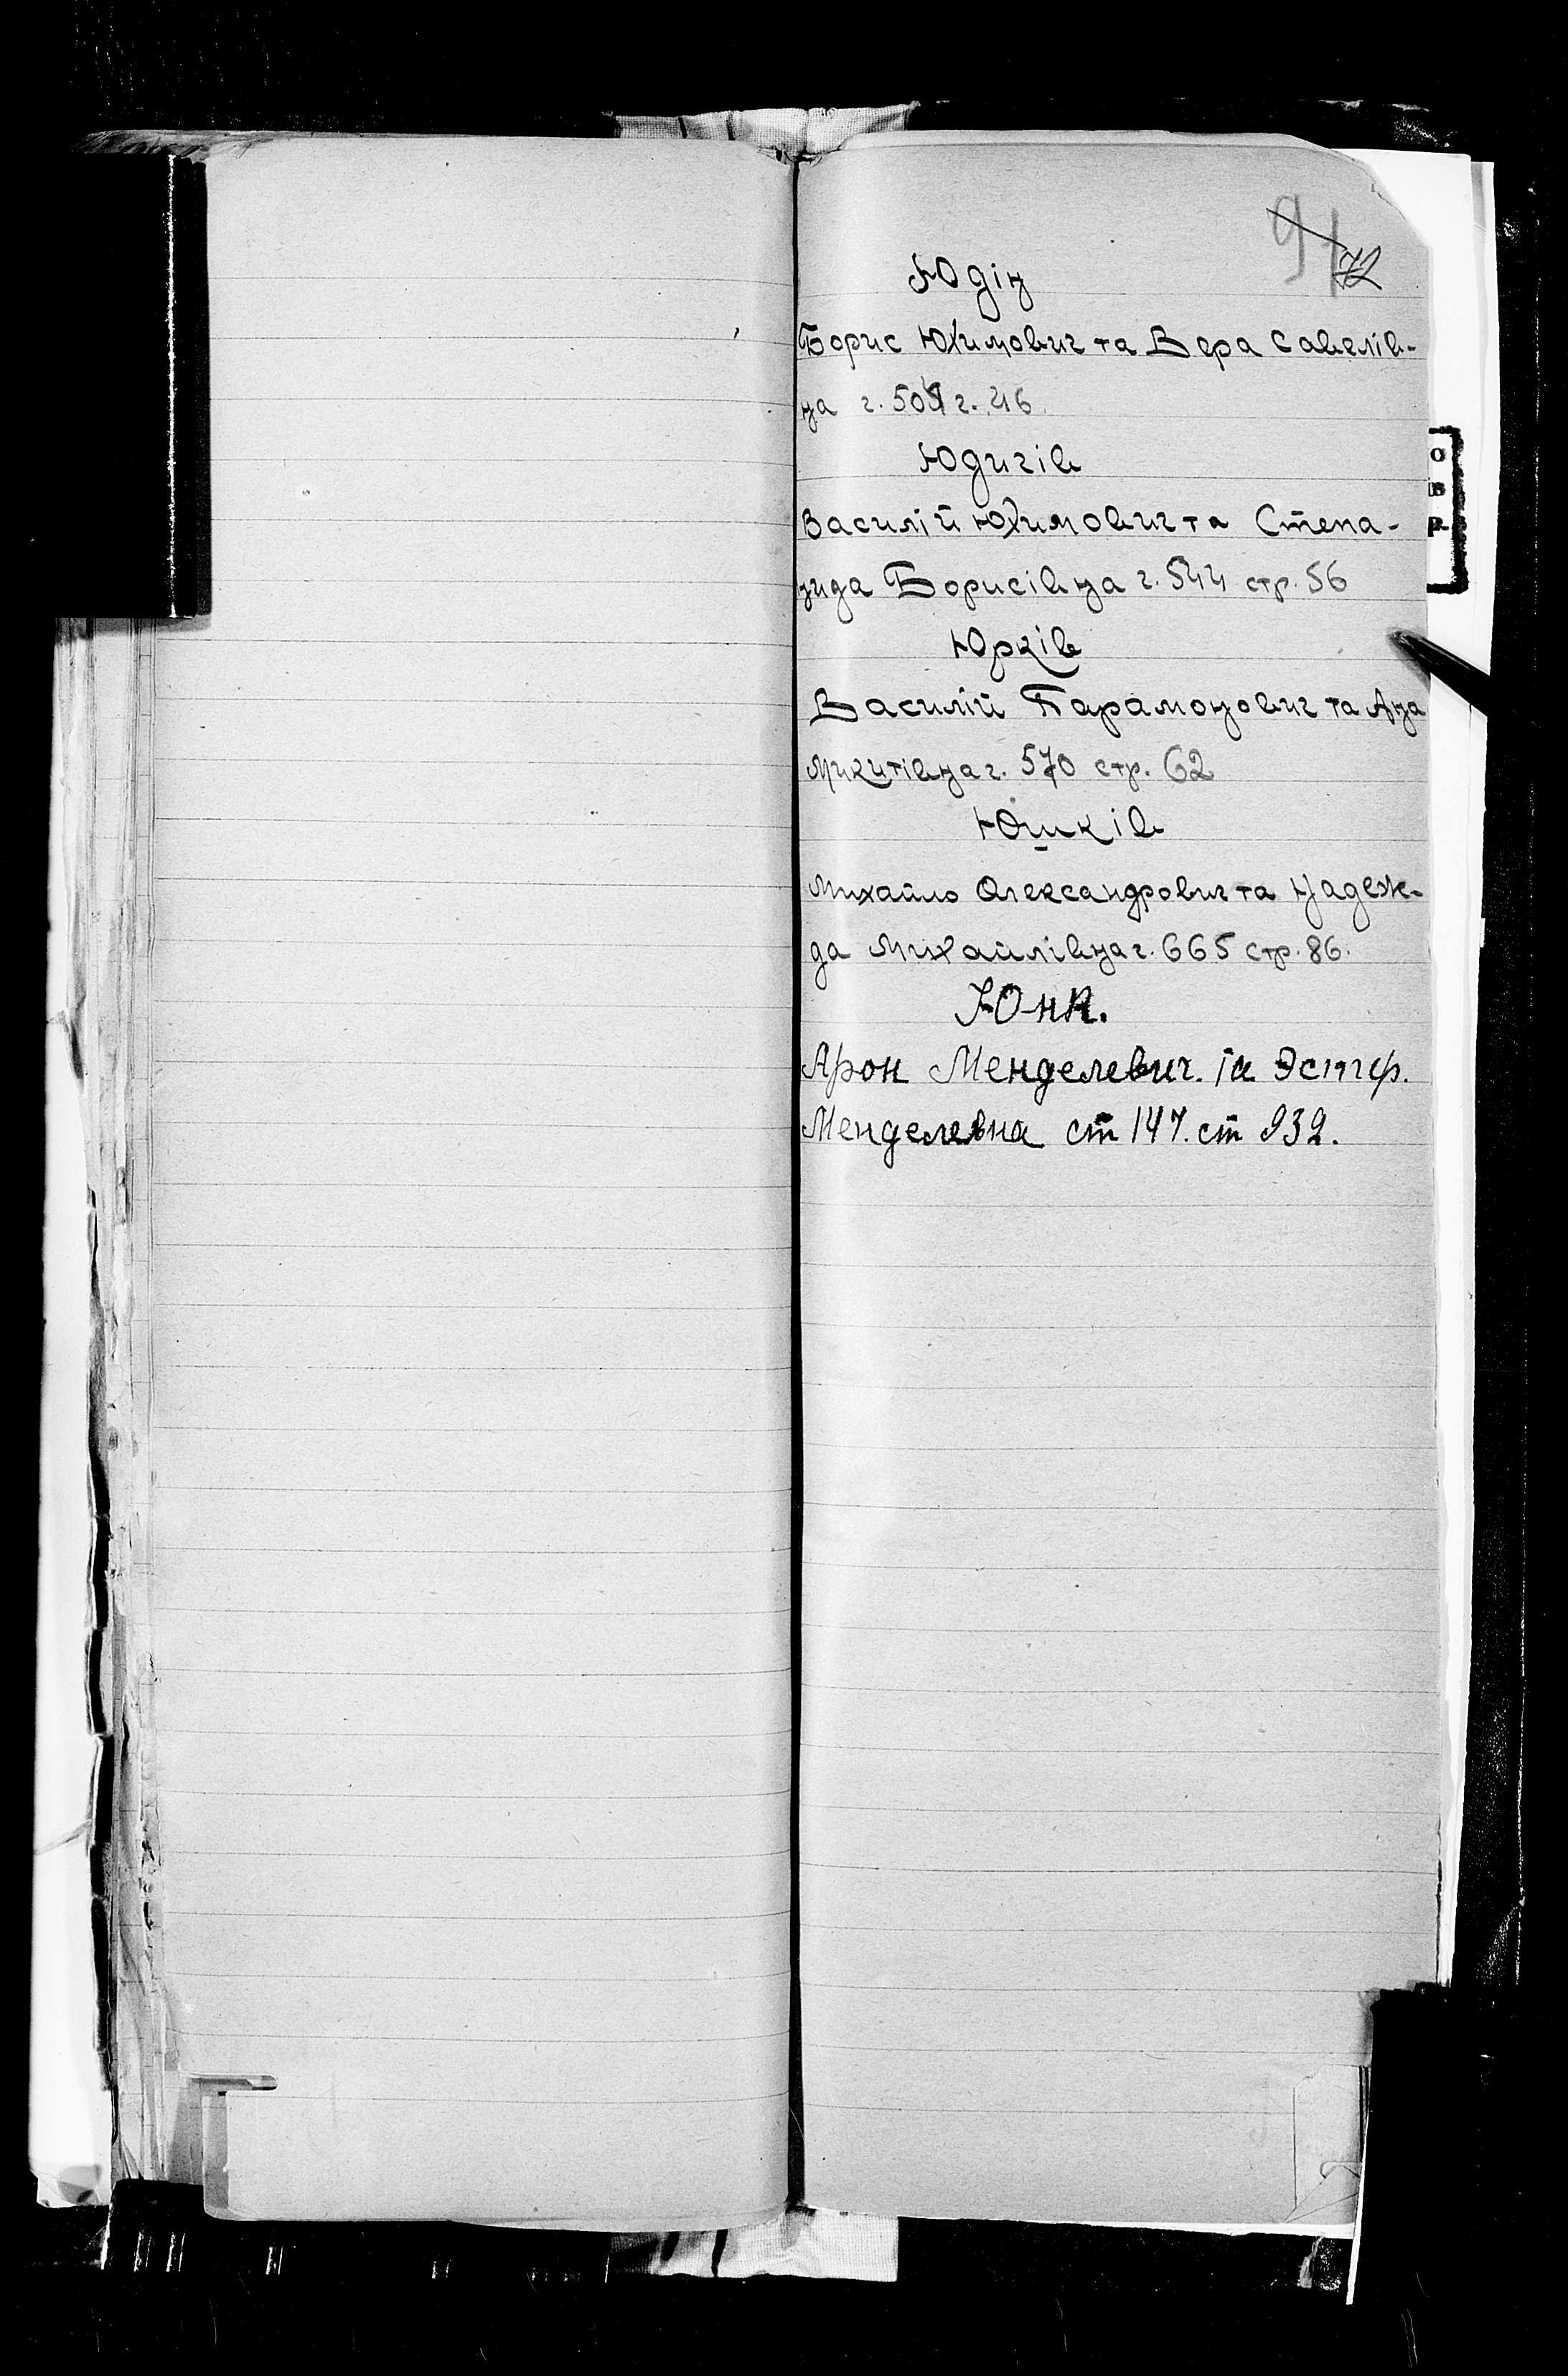 91 72
Юдін
Борис Юхимович та Вера Савелів-
на ч. 504 г. 46.
Юдичів
Василій Юхимович та Степа-
нида Борисівна ч. 544 стр. 56
Юрків
Василій Парамонович та Ана
Микитівна ч. 570 стр. 62
Юшків
Михайло Олександрович та Надеж-
да Михайлівна ч. 665 стр. 86.
О
В
Р
Арон Менделевич. та Эстер.
Менделевна ст 147. ст 932.